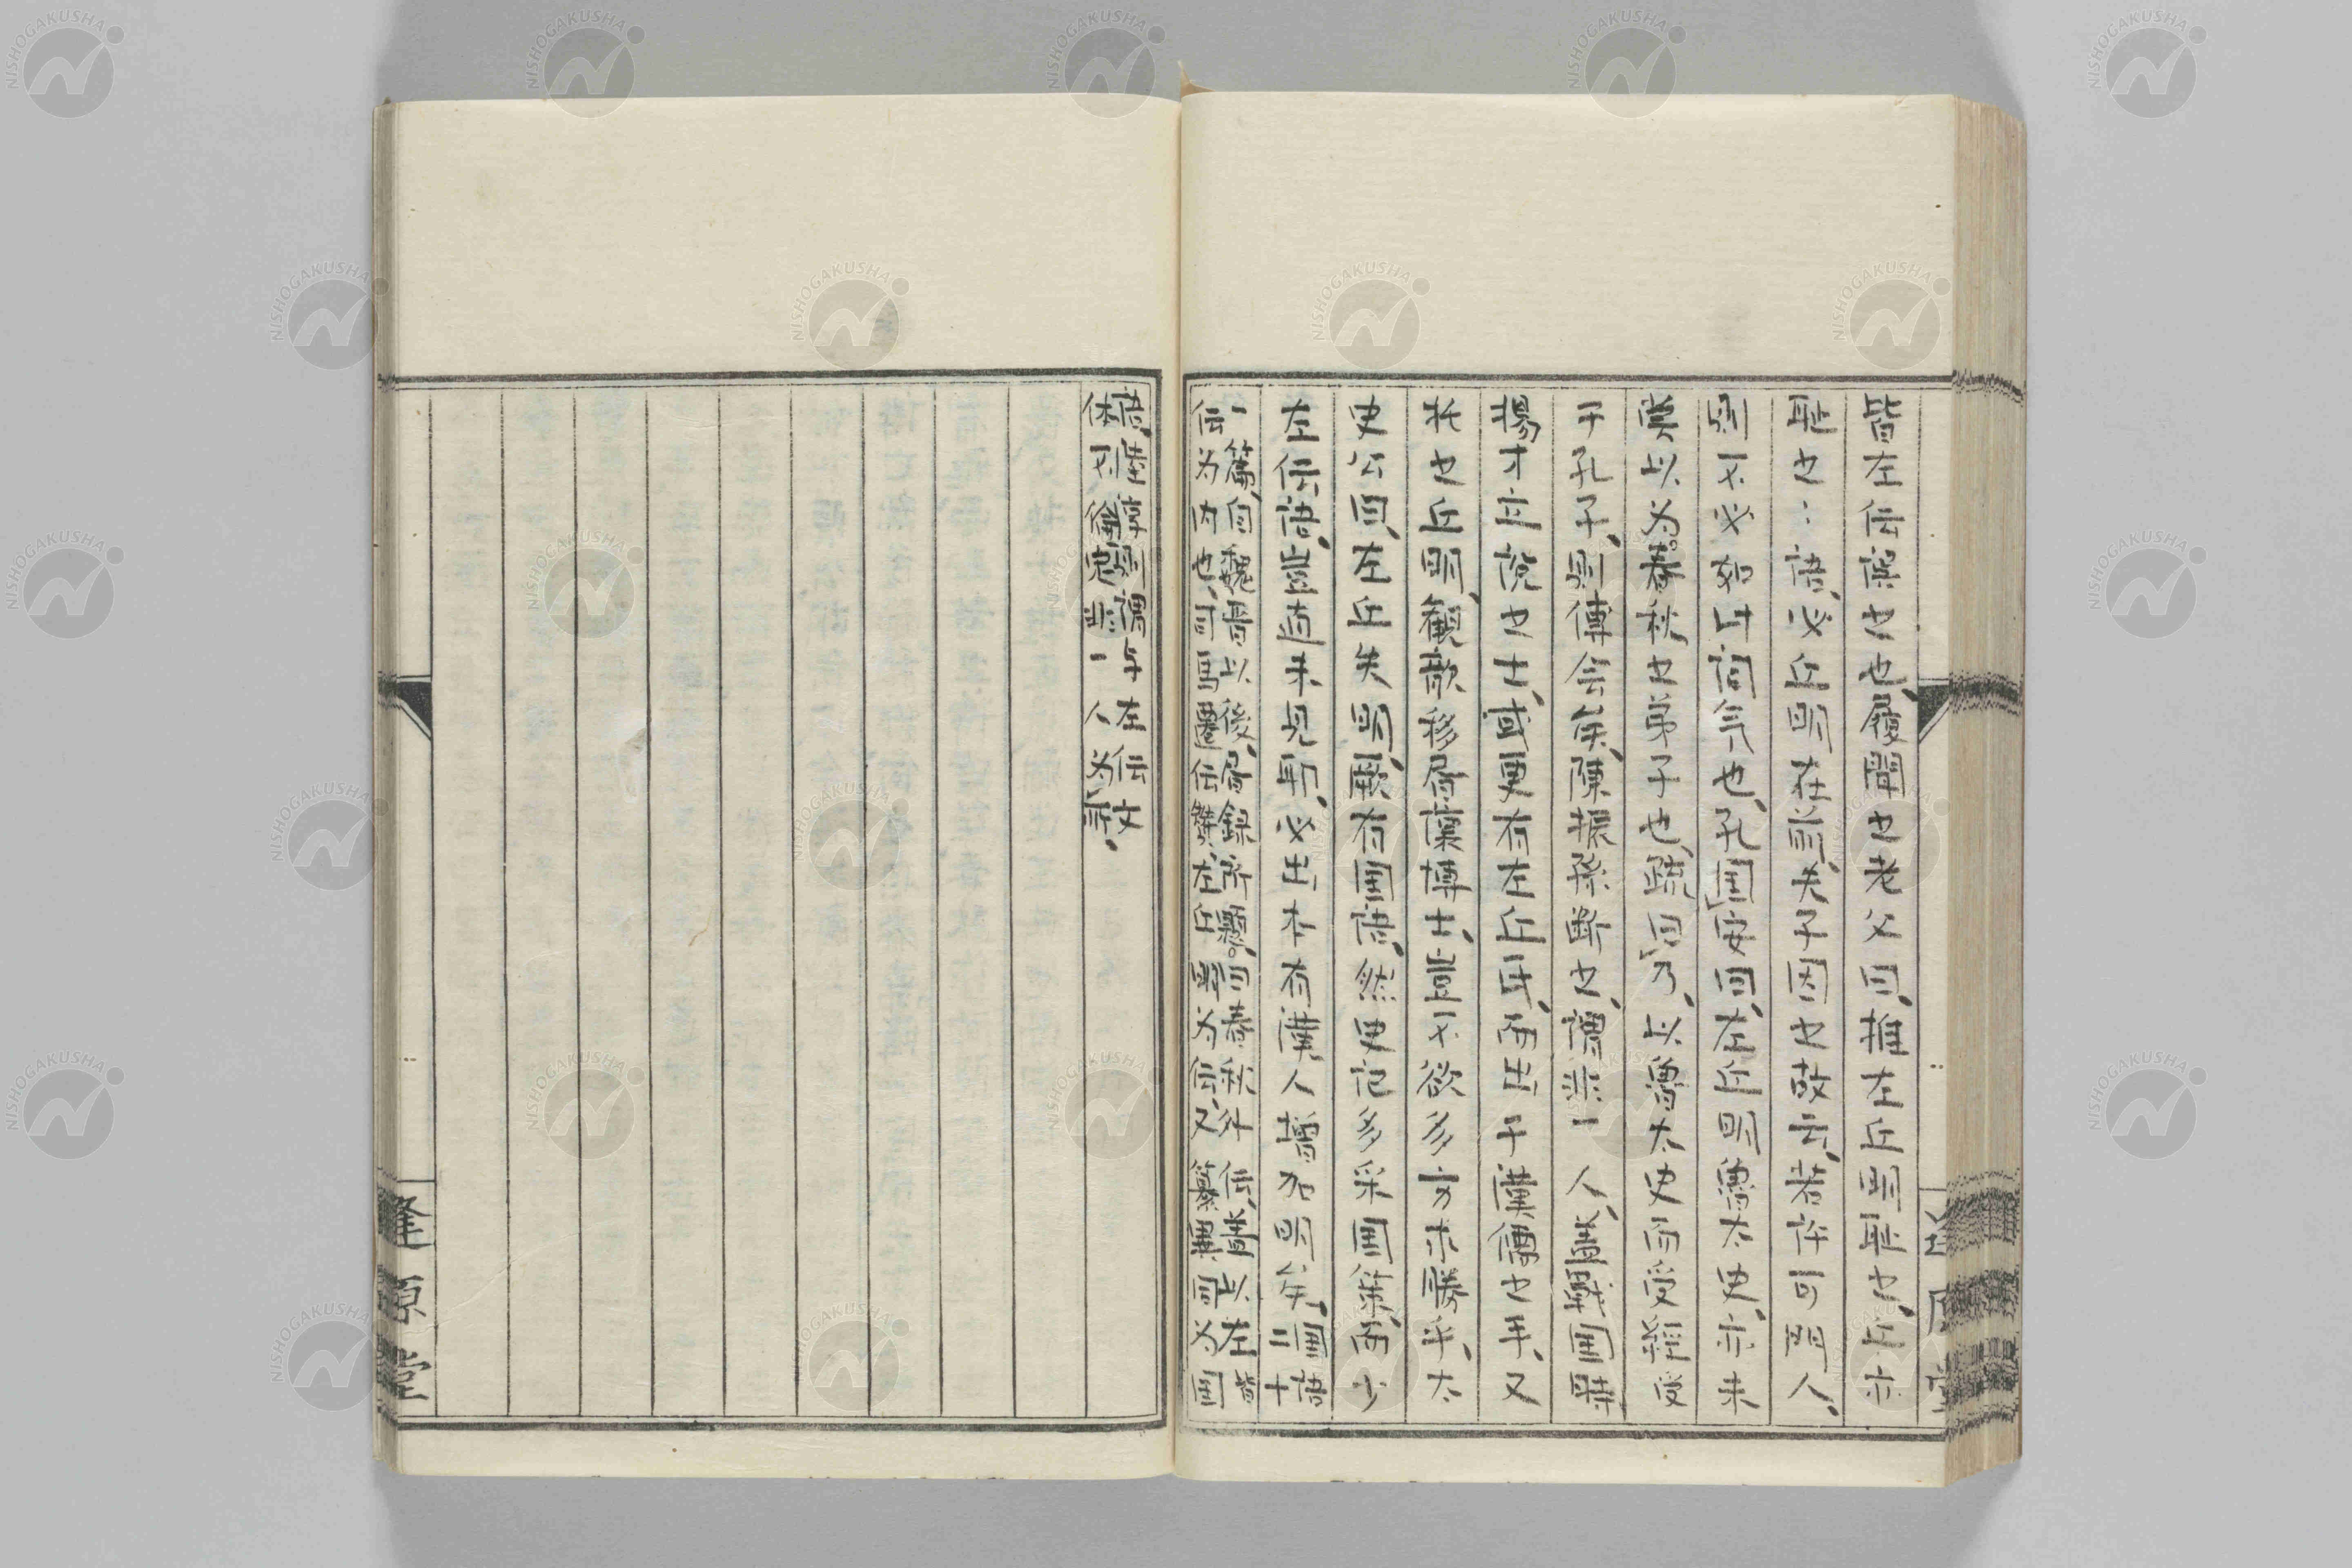 皆左伝誤之也、履聞之老父曰、推左丘明恥之、丘亦
恥之之語、必丘明在前、夫子因之故云、若許可門人、
則不必如此詞气也、孔国安曰、左丘明魯太史、亦未
嘗以為春秋之弟子也、疏曰乃、以魯太史而受経受
于孔子、則傅会矣、陳振孫断之、謂非一人、蓋戰国時
揚才立説之士、或更有左丘氏、而出于漢儒之手、又
托之丘明、観歆移書讓博士、豈不欲多方求勝乎、太
史公曰、左丘失明、厥有国語、然史记多采国策、而少
左伝語、豈造未見耶、必出本有漢人增加明矣、国語二十
一篇、自魏晋以後、書録所題。曰春秋外伝、蓋以左
伝为内也、司馬遷伝贊、左丘明为伝、又纂異同为国
語、陸淳則謂与左伝文
体不倫定非一人为、
逢原堂
NISHOGAKUSHA